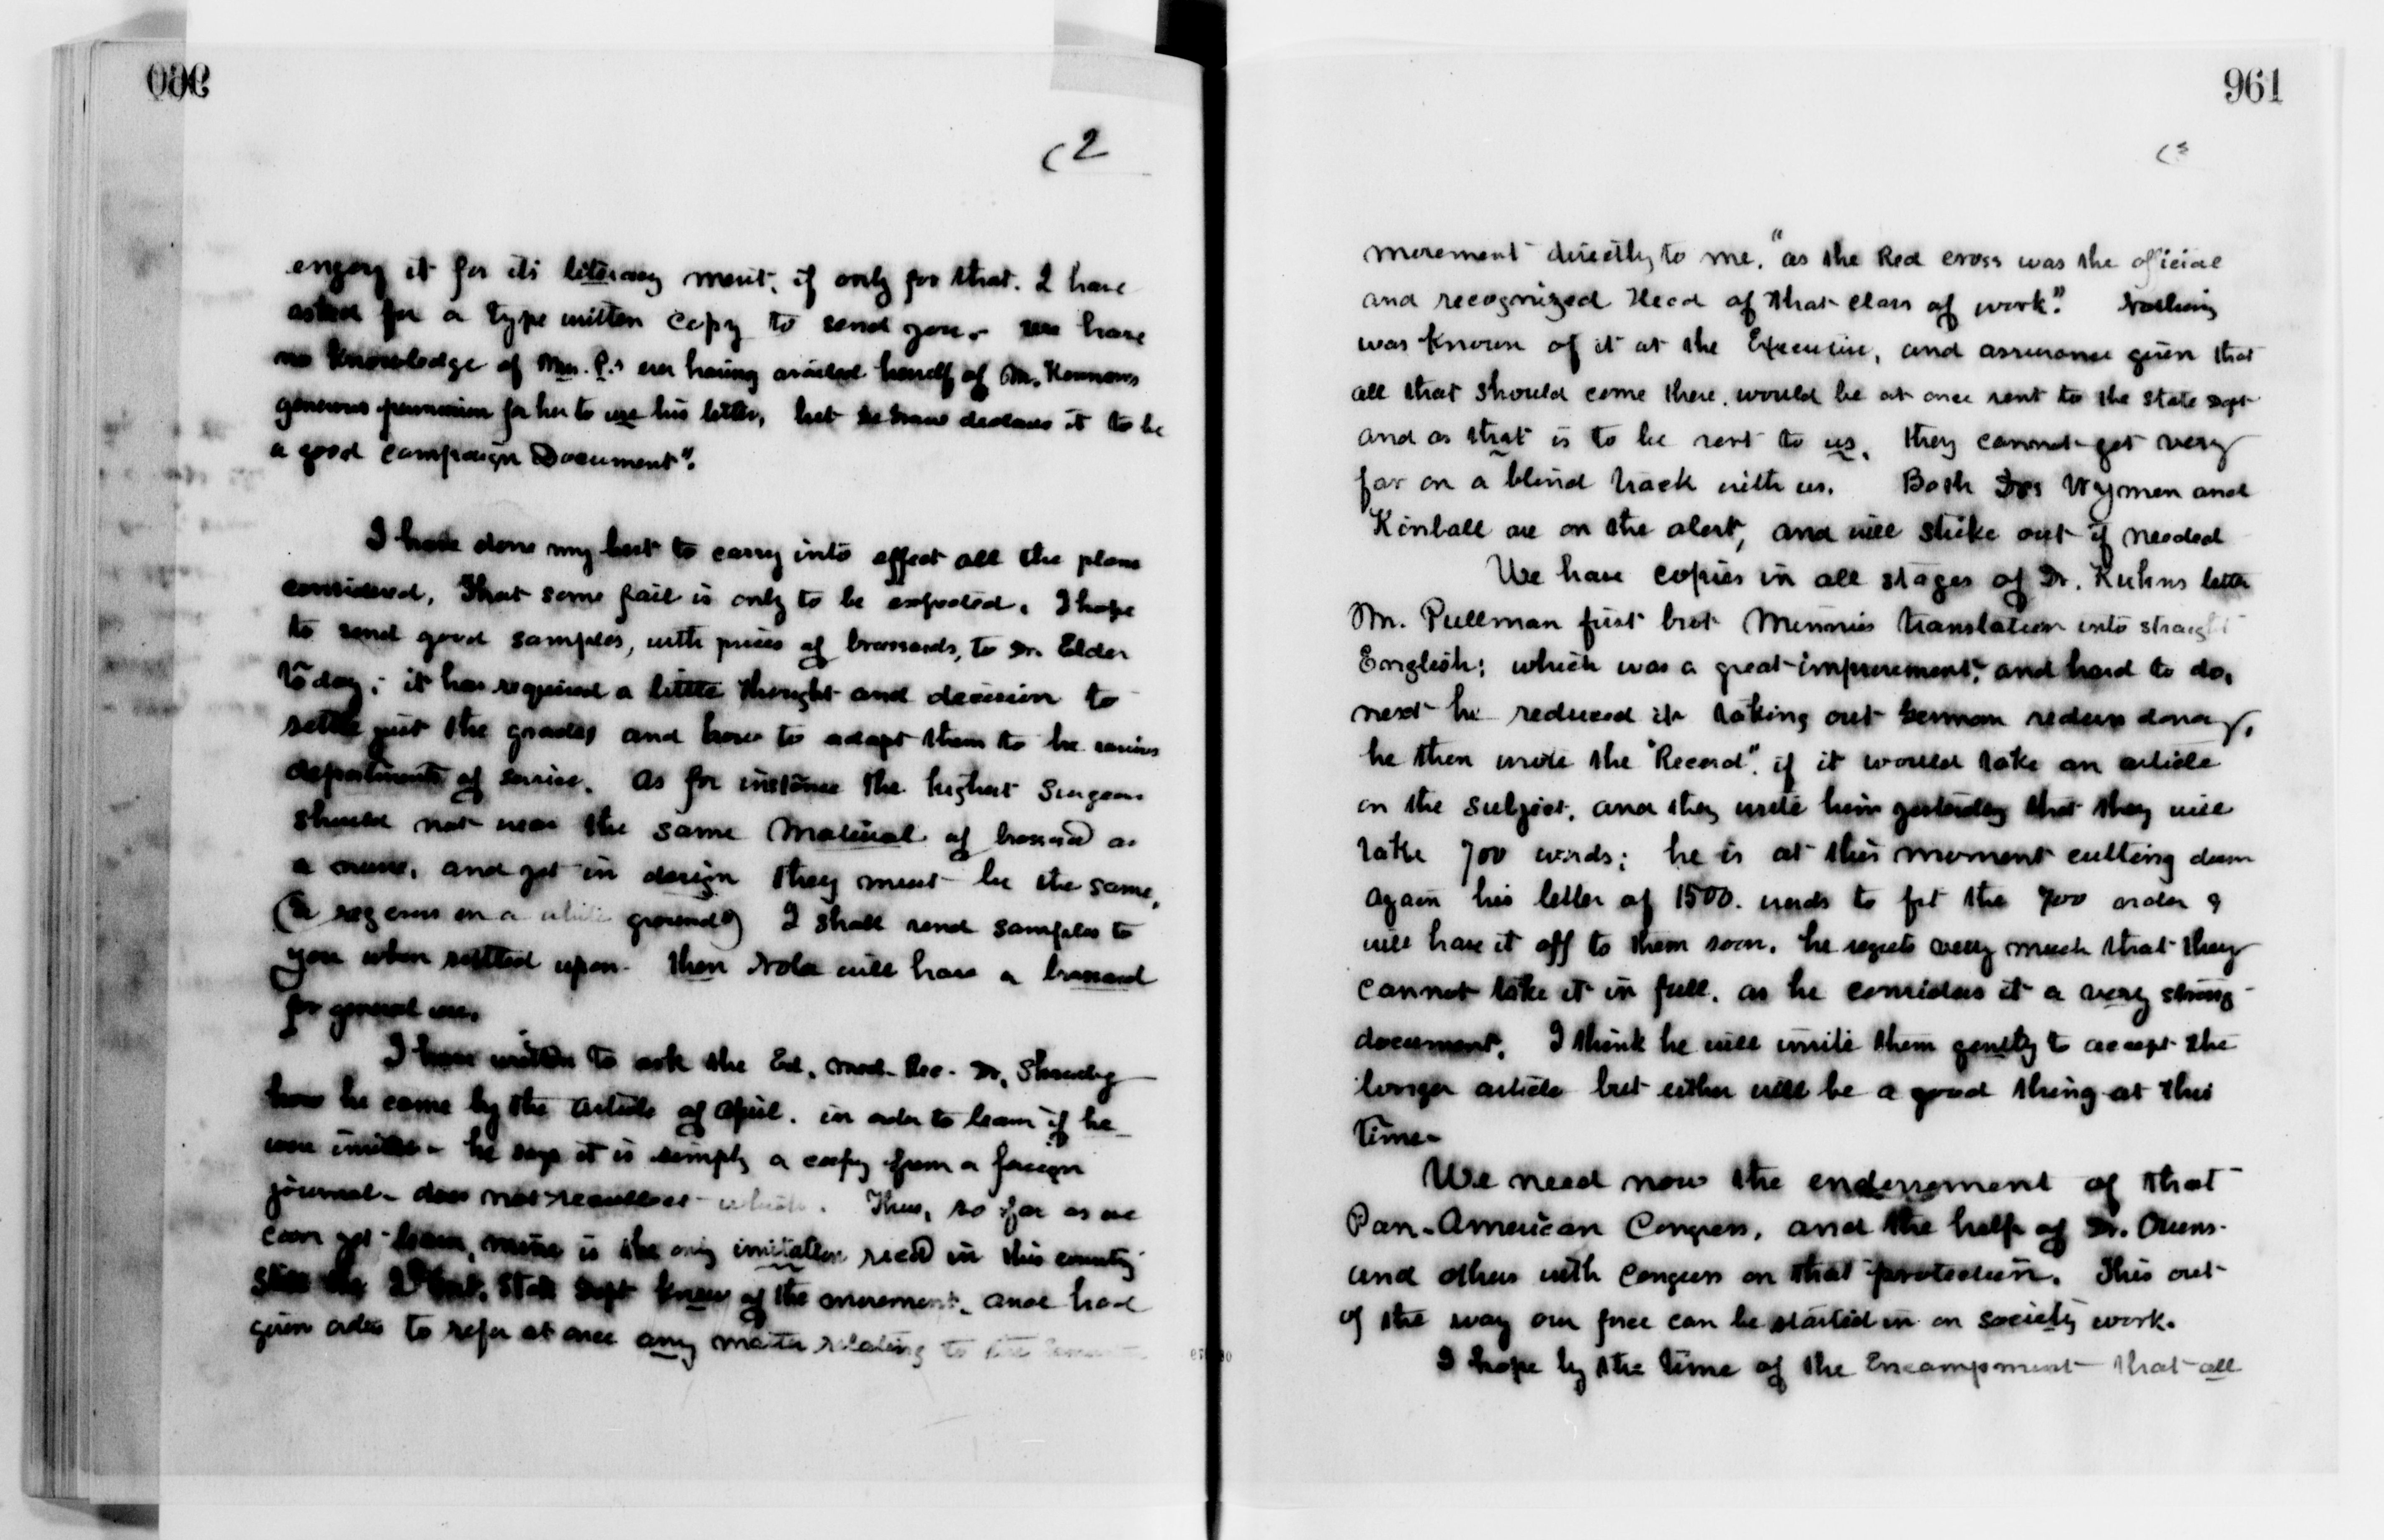 960
(2
enjoy it for its literary merit, if only for that. I have
asked for a type written copy to send you. We have
no knowledge of Mrs. P.s ever having availed herself of Mr. Kennans
generous permission for her to use his letter, but declares it to be
a good campaign Document".
I have done my best to carry into effect all the plans
considered, That some fail is only to be expected. I hope
to send good samples, with prices of brassards, to Dr. Elder
To day; it has required a little thought and decision to
settle just the grades and how to adapt them to the various
departments of service. As for instance the highest Surgeon
should not wear the same Material of brassard as
a nurse, and yet in design they must be the same,
(a red cross on a white ground) I shall send samples to
you when settled upon. Then Nola will have a brassard
for general use.
I have written to ask the Ed. Med. Rec. Dr. Shrady
how he came by the article of April. in order to learn if he
were invited - he says it is simply a copy from a foreign
journal - does not recollect which. Thus, so far as we
can yet learn, mine is the only invitation recd in this country
State Dept knew of the movement, and had
given orders to refer at once any matter relating to the
961
(3
movement directly to me, "as the Red cross was the official
and recognized Head of that class of work". Nothing
was known of it at the Executive, and assurance given that
all that should come there, would be at once sent to the State Dept
and as that is to be sent to us, they cannot get very
far on a blind track with us. Both Drs Wyman and
Kimball are on the alert, and will strike out if needed
We have copies in all stages of Dr. Kuhns letter
Mr. Pullman first bro't Minnies translation into straight
English; which was a great improvement, and hard to do,
next he reduced it taking out German redundancy,
he then wrote the "Record", if it would take an article
on the subject, and they write him yesterday that they will
take 700 words; he is at this moment cutting down
again his letter of 1500. words to fit the 700 order &
will have it off to them soon. he regrets very much that they
cannot take it in full, as he considers it a very strong
document. I think he will invite them gently to accept the
longer article but either will be a good thing at this
time-
We need now the endorsement of that
Pan-American Congress, and the help of Dr. Owens
and others with Congress on that protection. This out
of the way our force can be started in on society work.
I hope by the time of the Encampment that all